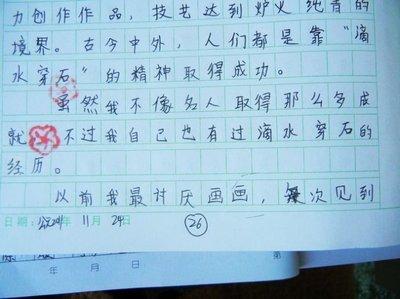 力创作作品，技艺达到炉火纯青的
境界。古今中外，人们都是靠“滴
水穿石”的精神取得成功。
虽然我不像名人取得那么多成
就 不过我自己也有过滴水穿石的
经历。
以前我最讨厌画画，次见到
日期： 年 11月 24日
26
年 月 日
第